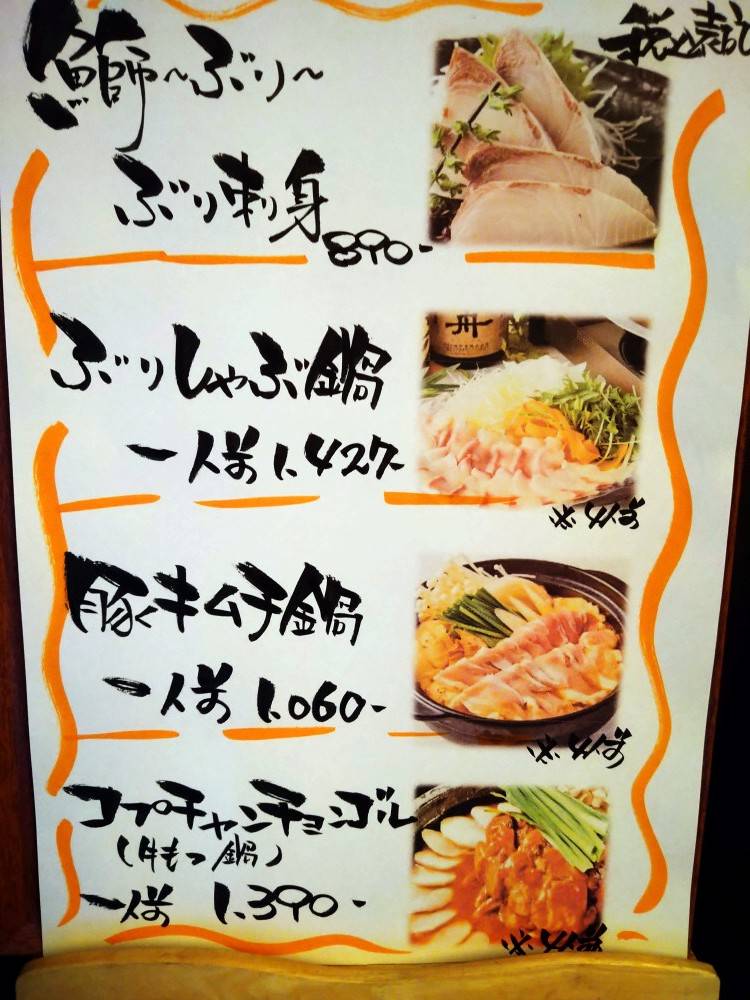 鰤~ぶり~
税込表記
ぶり刺身
890-
ぶりしゃぶ鍋
一人前 1,427-
豚キムチ鍋
一人前 1,060-
コプチャンチョンゴル
(牛もつ鍋)
一人前 1,390-